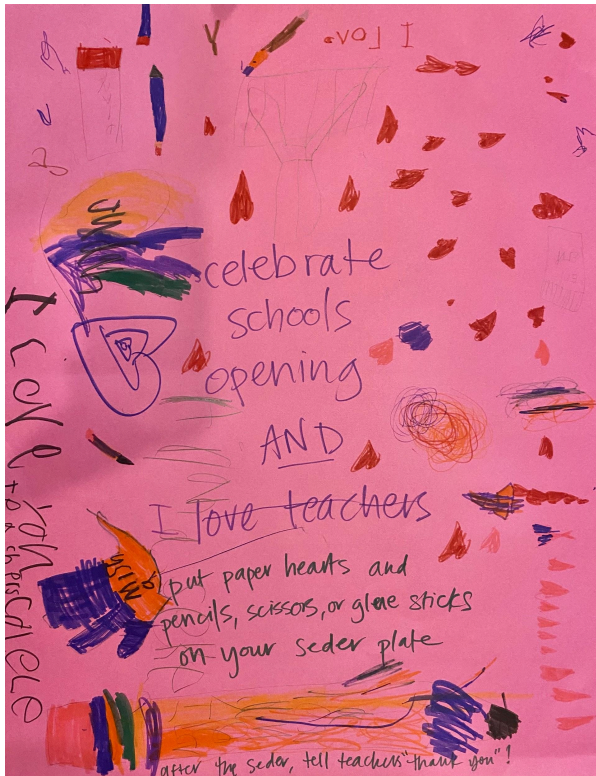 I Lov
celebrate
schools
opening
AND
I love teachers
put paper hearts and
pencils, scissors, or glue sticks
on your seder plate
after the seder, tell teachers "thank you"!
I Love